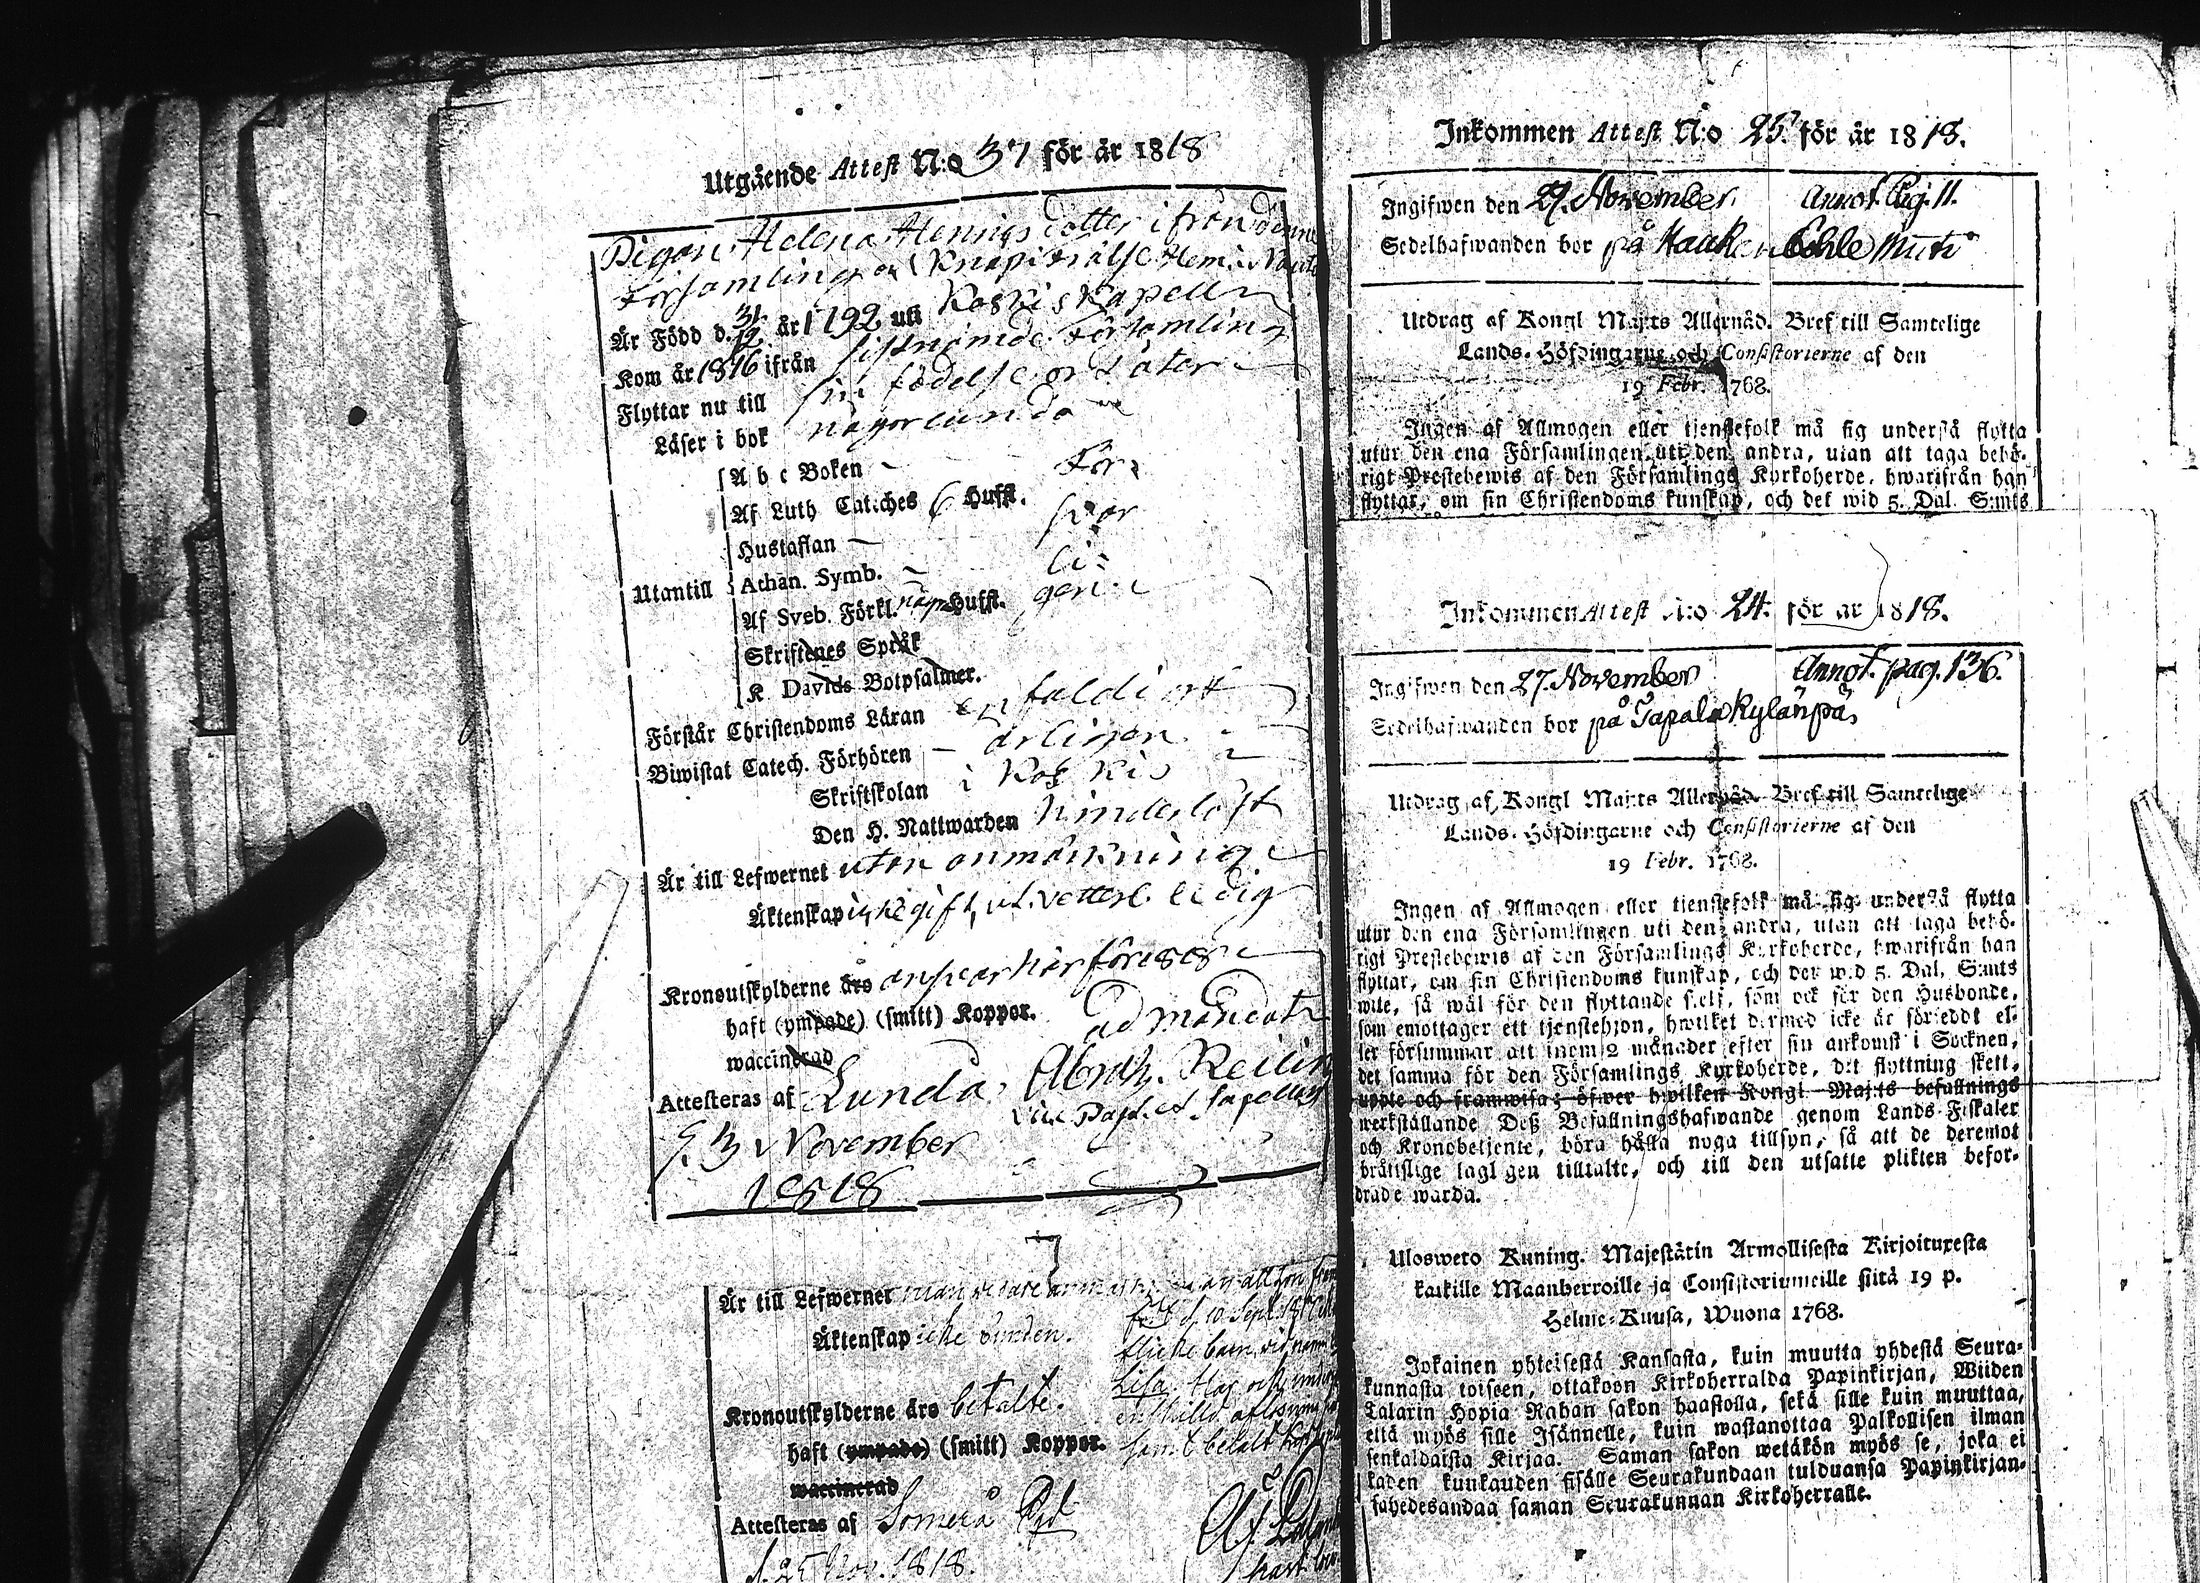 Utgående Attest N:o 37 för år 1818
Pigan Helena Henrics dotter ifrån denne
Församling och Knapi Frälse Hem:
Är Född d. 31/12 år 1792 uti Koskis Kapell
Kom år 1816 ifrån sistnämde Församling
Flyttar nu till sin födelse ort åter
Läser i bok någorlunda
A b c Boken - För-
Af Luth Catches 6 Hufst. svar
Hustaflan -
Utantill Athan. Symb. - li-
Af Sveb. Förkl. någr Hufst. gen
Skriftenes Språk
K Davids Botpsalmer.
Förstår Christendoms Läran enfaldigt
Biwistat Catech. Förhören - årligen
Skriftskolan i Koskis
Den H. Nattwarden hinderlöst
Är till Lefwernet utan anmärkning
Äktenskap icke gift, vet. ledig
Kronoutskylderne äro ansvar här före 1818
haft (ympade) (smitt) Koppor. Ad mandatum
waccinerad
Attesteras af Lunda, Abrah. Reilin
Vice Past. et Sacellan
d. 13 November
1818
Är till Lefwernet utan widare anmärkning än att hon
d. 10 Sept. 18
Äktenskap icke bunden. flicke barn, vid namn
Lisa, Har och undergått
enskilld aflösning
Kronoutskylderne äro betalte. samt betalt
haft (ympade) (smitt) Koppor.
waccinerad
Attesteras af Somero Pgd
d. 25 Nov. 1818.
Inkommen Attest N:o 25. för år 1818.
Ingifwen den 27. November. Annot. Pag. 11.
Sedelhafwanden bor på
Utdrag af Kongl Maj:ts Allernåd. Bref till Samtelige
Lands-Höfdingarne och Consistorierne af den
19 Febr. 1768.
Ingen af Allmogen eller tjenstefolk må sig understå flytta
utur den ena Församlingen uti den andra, utan att taga behö-
rigt Prestebewis af den Församlings Kyrkoherde, hwarifrån han
flyttar, om sin Christendoms kunskap, och det wid 5. Dal. S:mts
Inkommen Attest N:o 24. för år 1818.
Ingifwen den 27. November Annot. pag. 136.
Sedelhafwanden bor på Tapala Kylänpä
Utdrag af Kongl Maj:ts Allernåd. Bref till Samtelige
Lands-Höfdingarne och Consistorierne af den
19 Febr. 1768.
Ingen af Allmogen eller tjenstefolk må sig understå flytta
utur den ena Församlingen uti den andra, utan att taga behö-
rigt Prestebewis af den Församlings Kyrkoherde, hwarifrån han
flyttar, om sin Christendoms kunskap, och det wid 5. Dal. S:mts
wite, så wäl för den flyttande sielf, som ock för den Husbonde,
som emottager ett tjenstehjon, hwilket dermed icke är försedt el-
ler försummar att inom 2 månader efter sin ankomst i Socknen,
det samma för den Församlings Kyrkoherde, dit flyttning skett,
uppte och framwisa; öfwer hwilket Kongl. Maj:ts befallnings
werkställande Deß Befallningshafwande genom Lands-Fiskaler
och Kronobetjente, böra hålla noga tillsyn, så att de deremot
bråttslige lagligen tilltalte, och till den utsatte plikten befor-
drade warda.
Ulosweto Kuning. Majestätin Armollisesta Kirjoituxesta
kaikille Maanherroille ja Consistoriumeille siitä 19 p.
Helme-Kuusa, Wuona 1768.
Jokainen yhteisestä Kansasta, kuin muutta yhdestä Seura-
kunnasta toiseen, ottakoon Kirkoherralda Papinkirjan, Wiiden
Talarin Hopia Rahan sakon haastolla, sekä sille kuin muuttaa,
että myös sille Isännelle, kuin wastanottaa Palkollisen ilman
senkaldaista Kirjaa. Saman sakon wetäkön myös se, joka ei
kaden kuukauden sisälle Seurakundaan tulduansa Papinkirjan-
sahedesandaa saman Seurakunnan Kirkoherralle.